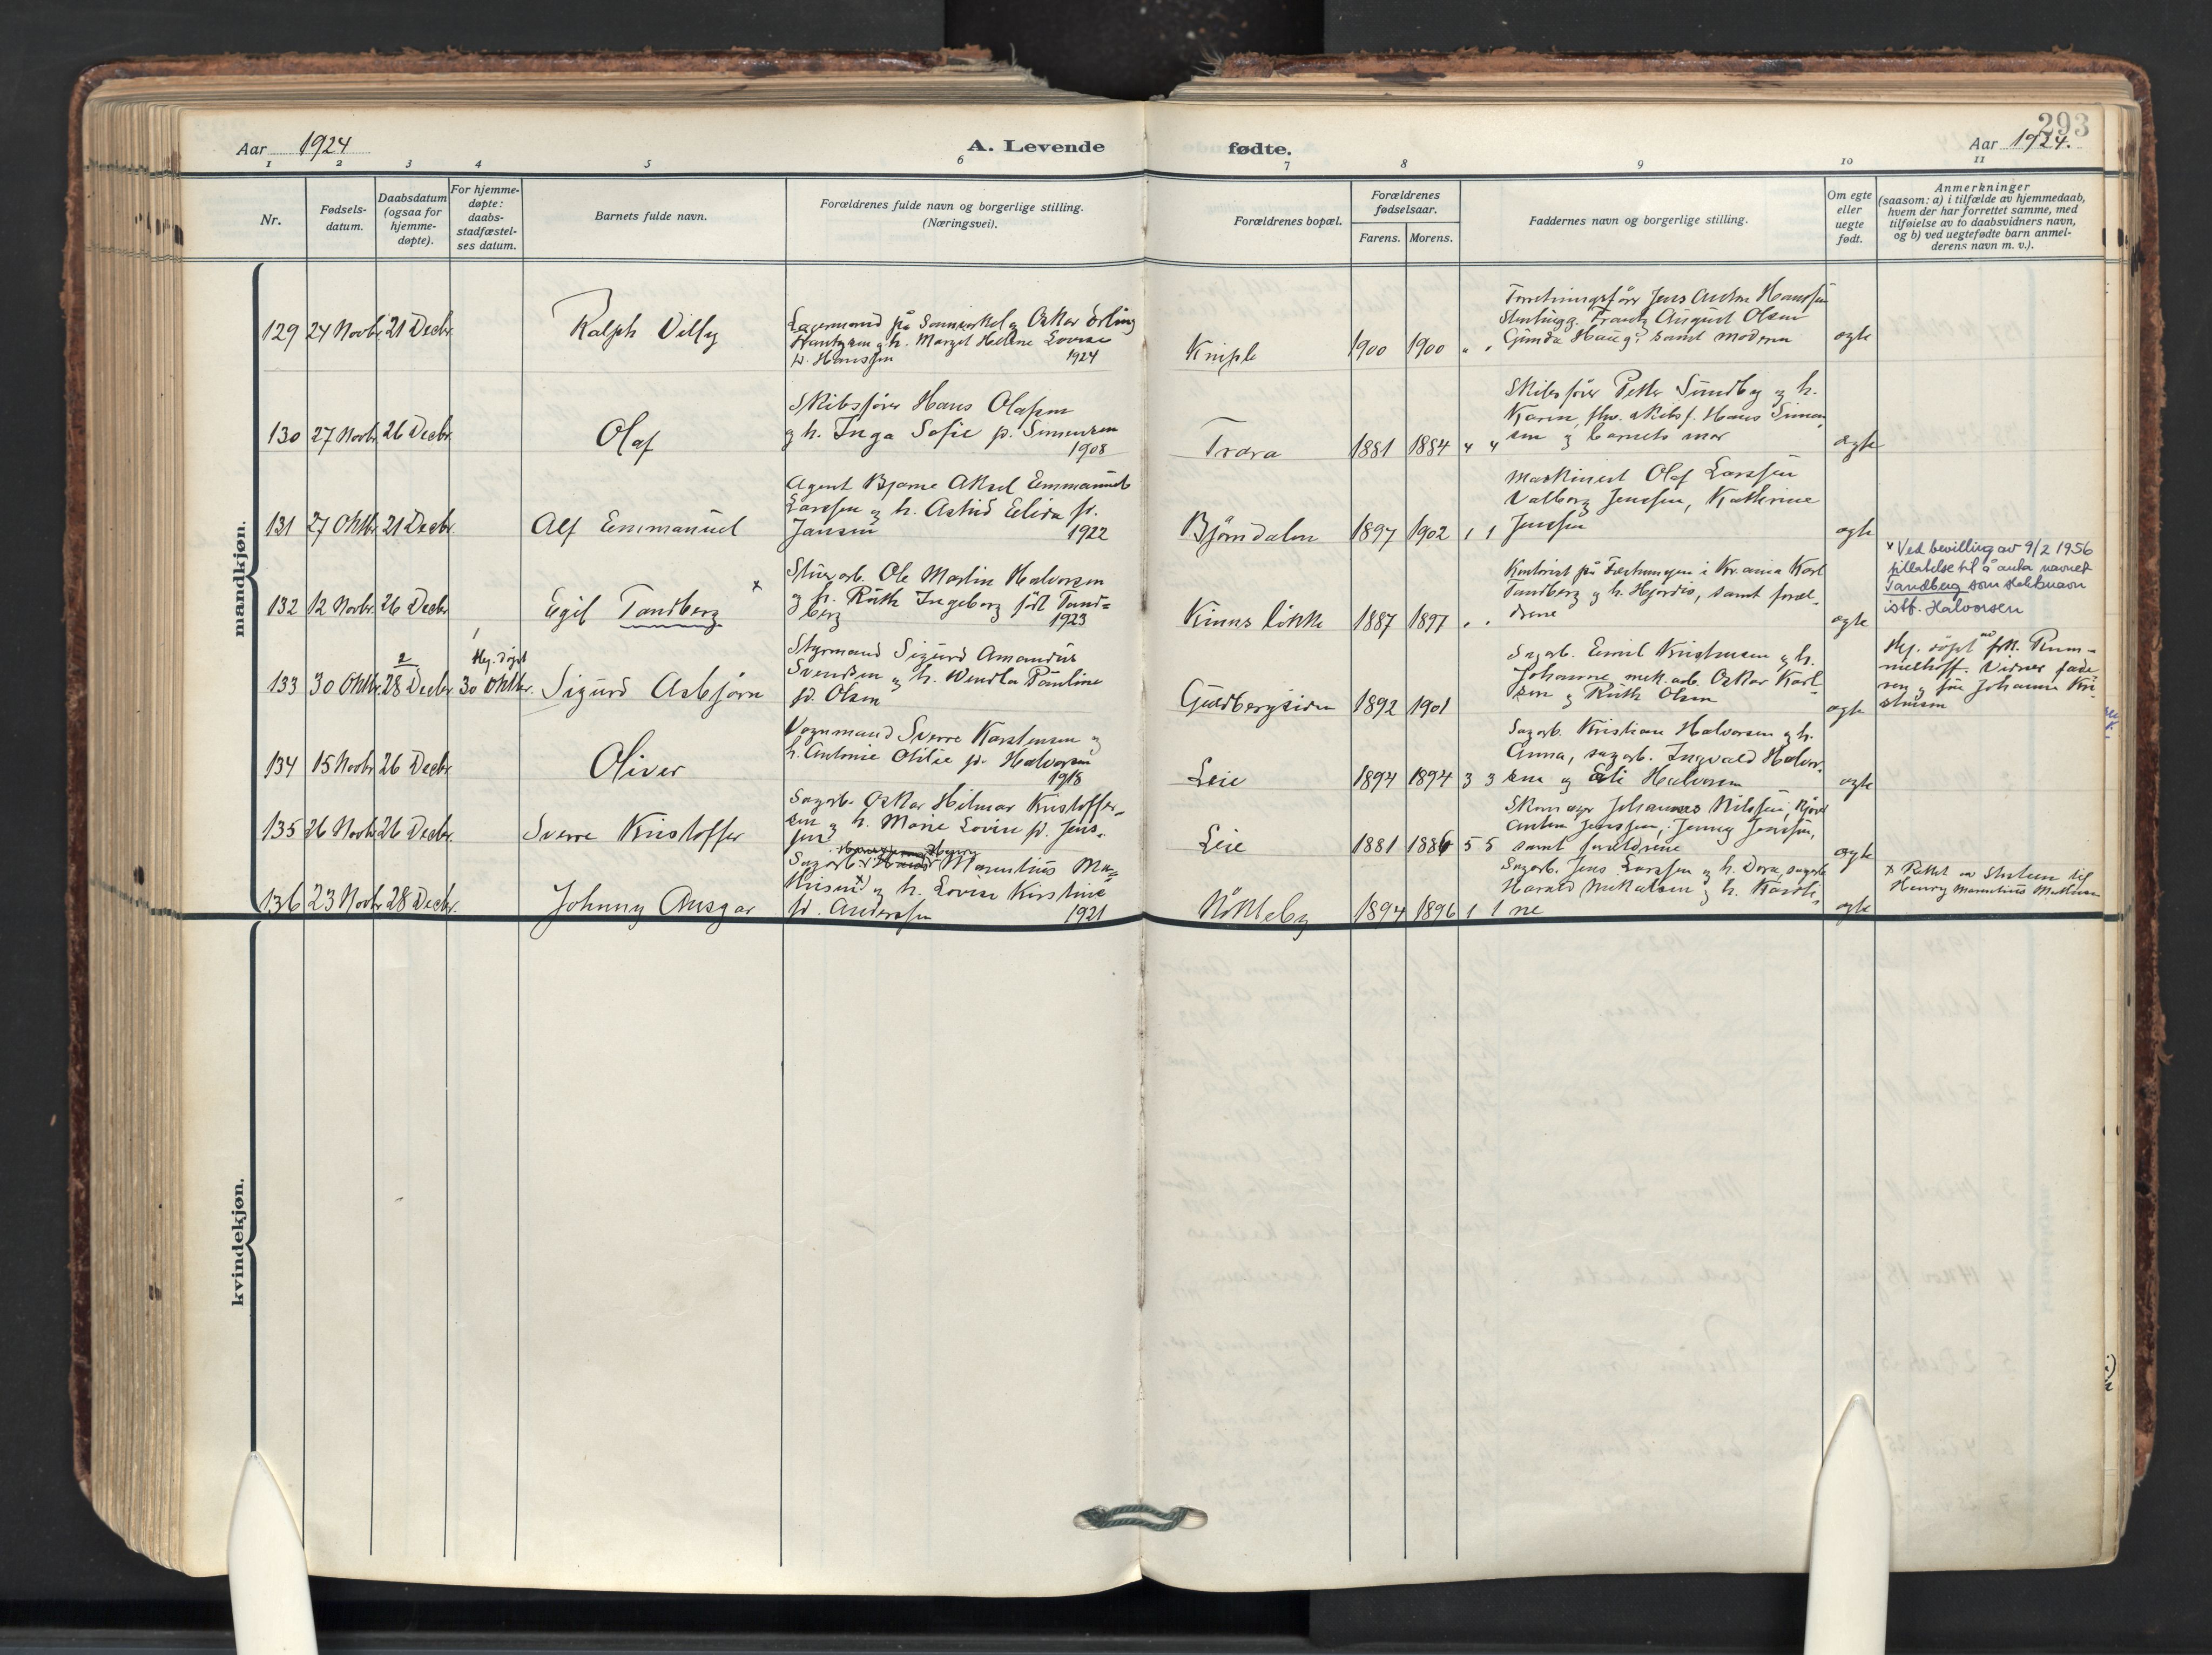 293
Aar 1924
A. Levende
fødte.
Aar 1924.
1 2 3 4 5 6 7 8 9 10 11
Nr.
Fødsels-
datum.
Daabsdatum
(ogsaa for
hjemme-
døpte).
For hjemme-
døpte:
daabs-
stadfæstel-
ses datum.
Barnets fulde navn.
Forældrenes fulde navn og borgerlige stilling.
(Næringsvei).
Forældrenes bopæl.
Forældrenes
fødselsaar.
Farens. Morens.
Faddernes navn og borgerlige stilling.
Om egte
eller
uegte
født.
Anmerkninger
(saasom: a) i tilfælde av hjemmedaab,
hvem der har forrettet samme, med
tilføielse av to daabsvidners navn,
og b) ved uegtefødte barn anmel-
derens navn m. v.).
mandkjøn.
129 24 Novbr. 21 Decbr.
Ralph Villy
Lagermand på Oskar Erling
h. Margit Helene Lovise
f. Hanssen 1924
Kniple
1900 1900 " "
Forretningsfører Jens Anton Hanssen
Stenhugg. Frantz August Olsen
Gunda Haug, samt moderen
egte
130 27 Novbr. 26 Decbr.
Olaf
Skibsfører Hans Olafsen
og h. Inga Sofie f. Simensen
1908
Trara
1881 1884 " "
Skibsfører Petter Sundby og h.
Karin, skibsf. Hans Simen-
sen og barnets mor
egte
131 27 Oktbr. 21 Decbr.
Alf Emmanuel
Agent Bjarne Aksel Emmanuel
Larssen og h. Astrid Elida f.
Jansen 1922
Bjørndalen
1897 1902 1 1
Maskinist Olaf Larssen
Valborg Jenssen, Kathrine
Jenssen
egte
132 12 Novbr. 26 Decbr.
Egil Tandberg x
Ole Martin Halvorsen
og h. Ruth Ingeborg født Tand=
berg 1923
Kinns løkke
1887 1897 " "
Kontorist på Fæstningen i Kr.ania Karl
Tandberg og h. Hjørdis, samt foræl-
drene
egte
x Ved bevilling av 9/2 1956
tillatelse til å anta navnet
Tandberg som slektsnavn
istf. Halvorsen
133 30 Oktbr. 2 28 Decbr. 1 Hj. døpt 30 Oktbr.
Sigurd Asbjørn
Styrmand Sigurd Amandus
Svendsen og h. Wendla Pauline
f. Olsen
Guldbergsiden
1892 1901
Sagarb. Emil Kristensen og h.
Johanne mek. arb. Oskar Karl-
sen og Ruth Olsen
egte
Hj. døpt ved frk. Rum-
melhoff. Vidner fade-
ren og fru Johanne Kri-
stensen
134 15 Novbr. 26 Decbr.
Oliver
Vognmand Sverre Karstensen og
h. Antonie Otilie f. Halvorsen
1918
Leie
1894 1894 3 3
Sagarb. Kristian Halvorsen og h.
Anna, sagarb. Ingvald Halvor-
sen og Halvorsen
egte
135 26 Novbr. 26 Decbr.
Sverre Kristoffer
Sagarb. Oskar Hilmar Kristoffer-
sen og h. Marie Lovise f. Jens-
sen
Leie
1881 1886 5 5
Skomager Johannes Nilssen,
Anton Jenssen, Jenny Jenssen,
samt forældrene
egte
136 23 Novbr. 28 Decbr.
Johnny Ansgar
Henry
Sagarb. Marentius Ma-
thisen x og h. Lovise Kirstine
f. Anderssen 1921
Nøkleby
1894 1896 1 1
Sagarb. Jens Larssen og h. Dora, sagarb.
Harald Mikalsen og h. Karoli-
ne
egte
x Rettet av til
Henry Marentius Mathisen
kvindekjøn.